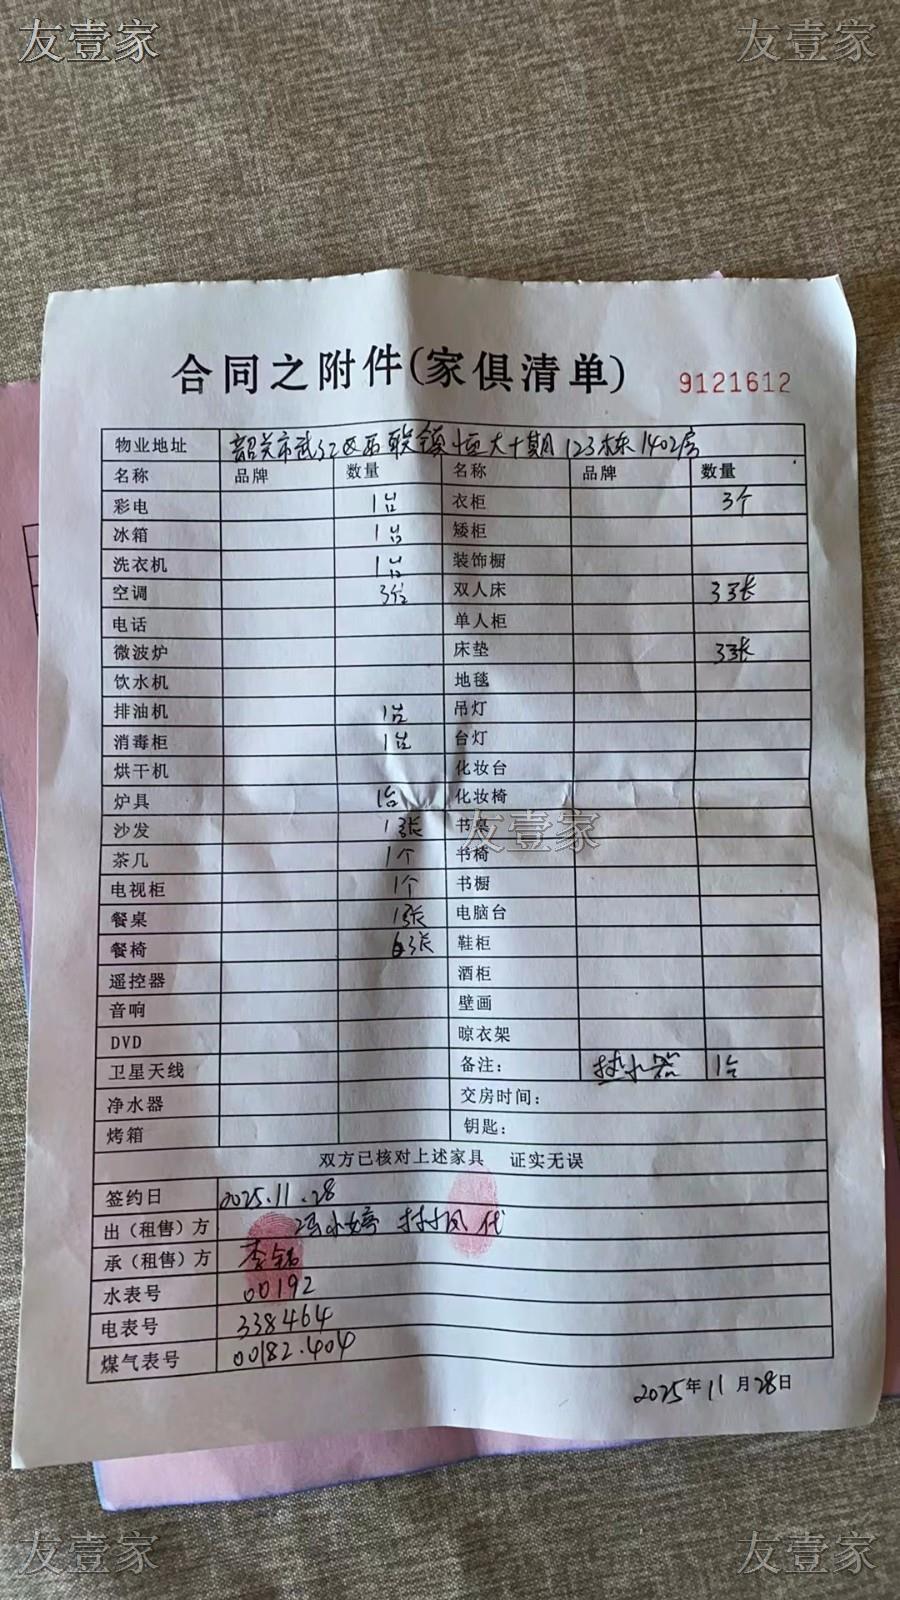 友壹家 友壹家
合同之附件(家俱清单) 9121612
物业地址 韶关市武江区西联镇恒大十期123栋1402房
名称 品牌 数量 名称 品牌 数量
彩电 1台 衣柜 3个
冰箱 1台 矮柜
洗衣机 1台 装饰橱
空调 3台 双人床 3张
电话 单人柜
微波炉 床垫 3张
饮水机 地毯
排油机 1台 吊灯
消毒柜 1台 台灯
烘干机 化妆台
炉具 1台 化妆椅
沙发 1张 书桌
友壹家
茶几 1个 书椅
电视柜 1个 书橱
餐桌 1张 电脑台
餐椅 6张 鞋柜
遥控器 酒柜
音响 壁画
DVD 晾衣架
卫星天线 备注: 热水器 1台
净水器 交房时间:
烤箱 钥匙:
双方已核对上述家具 证实无误
签约日 2025.11.28
出（租售）方 代
承（租售）方 李
水表号 00192
电表号 338464
煤气表号 00182.404
2025年11月28日
友壹家 友壹家